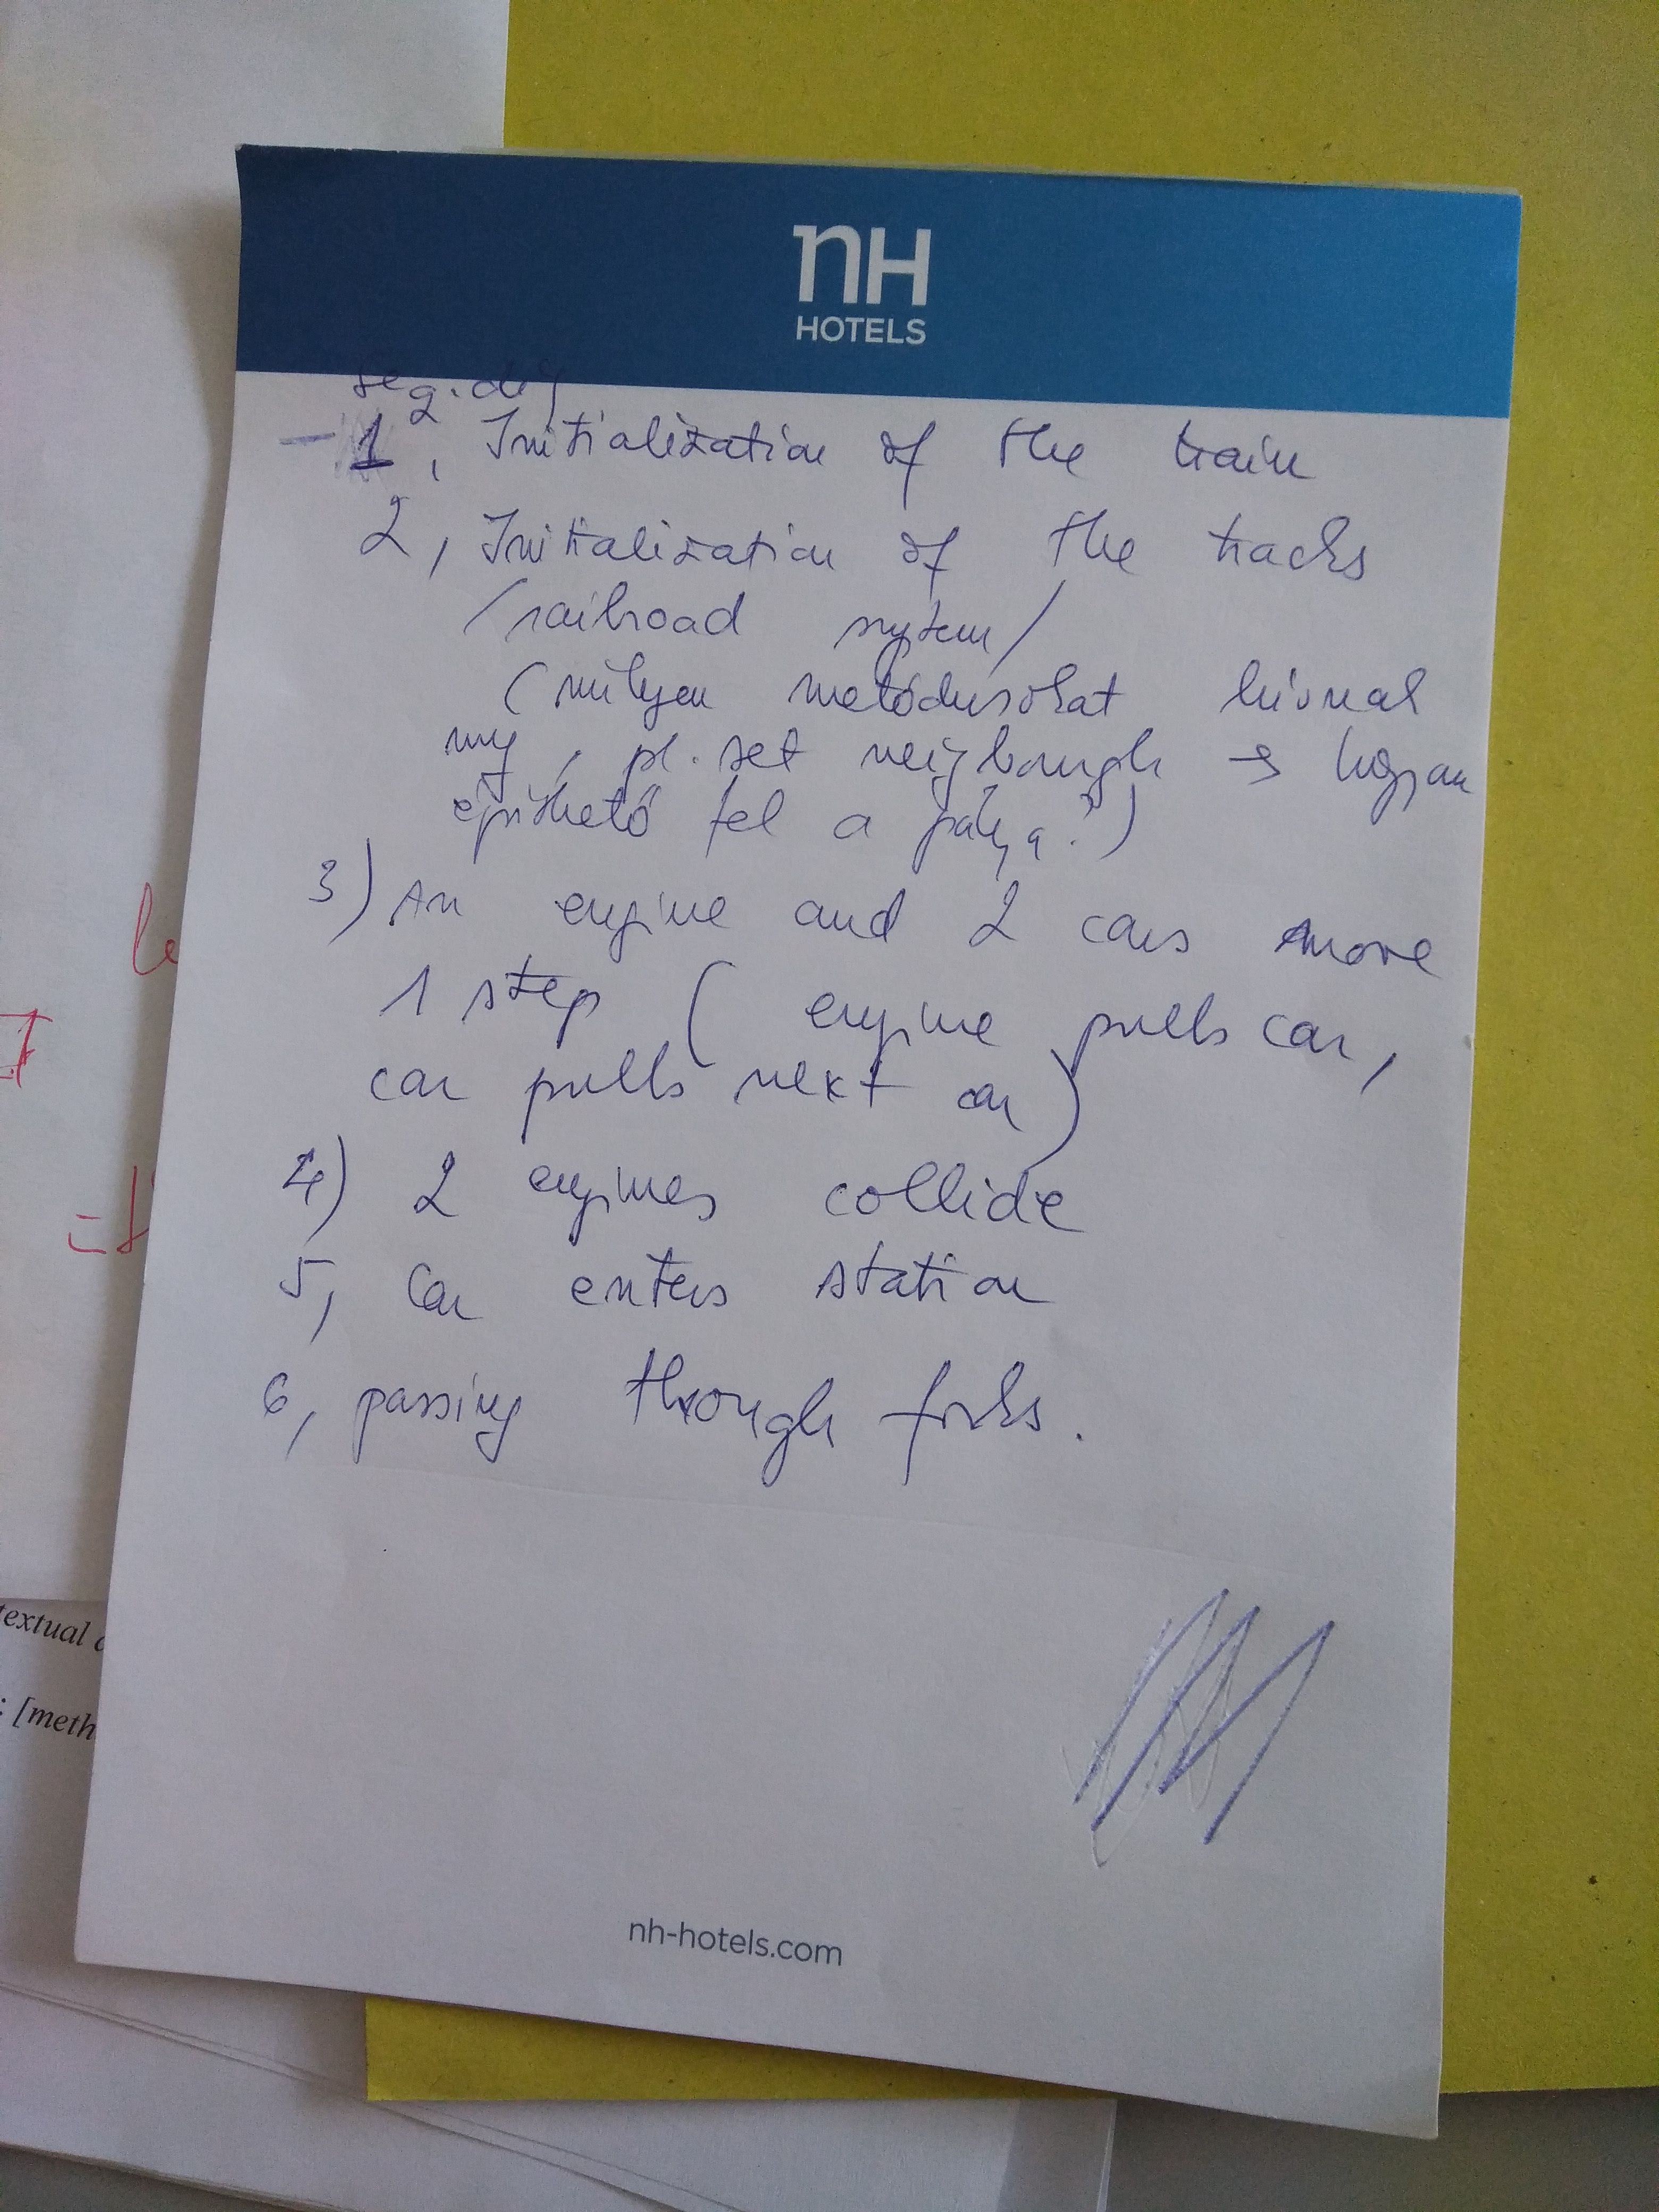 nH
HOTELS
1, Initialization of the train
2, Initialization of the tracks
/railroad system/
(milyen metódusokat hívnak
meg, pl. set neigbough → hogyan
építhető fel a pálya?)
3) An engine and 2 cars move
1 step ( engine pulls car,
car pulls next car)
4) 2 engines collide
5, Car enters station
6, passing through forks.
nh-hotels.com
textual
: [meth